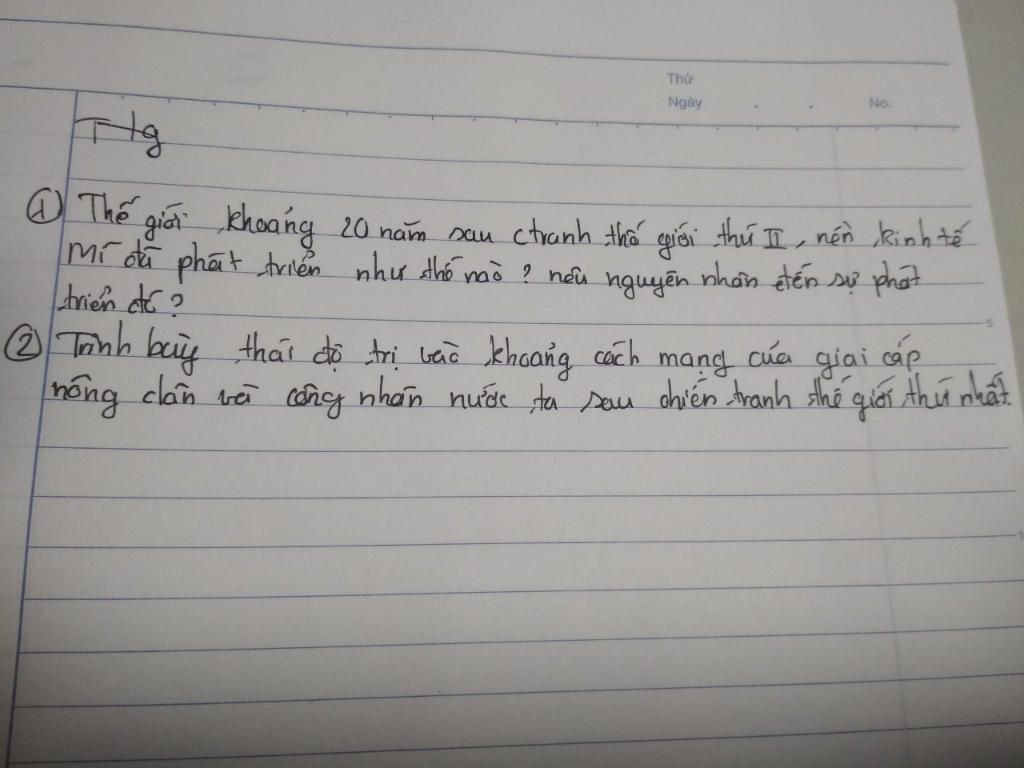 Thứ
Ngày . . No.
① Thế giới khoảng 20 năm sau ctranh thế giới thứ II, nền kinh tế
Mĩ đã phát triển như thế nào? nêu nguyên nhân đến sự phát
triển đó?
② Trình bày thái độ trị vào khoảng cách mạng của giai cấp
nông dân và công nhân nước ta sau chiến tranh thế giới thứ nhất.
5